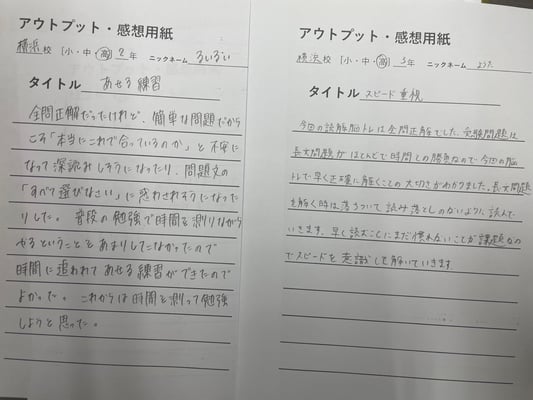 アウトプット・感想用紙
横浜校 (小・中・高) 2年 ニックネーム るいるい
タイトル あせる練習
全問正解だったけれど、簡単な問題だから
こそ「本当にこれで合っているのか」と不安に
なって深読みしそうになったり、問題文の
「すべて選びなさい」に惑わされそうになった
りした。普段の勉強で時間を測りながら
やるということをあまりしてなかったので
時間に追われてあせる練習ができたので
よかった。これからは時間を測って勉強
しようと思った。
アウトプット・感想用紙
横浜校 (小・中・高) 3年 ニックネーム
タイトル スピード重視
今回の読解脳トレは全問正解でした。受験問題は
長文問題がほとんどで時間との勝負なので今回の脳
トレで早く正確に解くことの大切さがわかりました。長文問題
を解く時は落ちついて読み落としのないように読んで
いきます。早く読むことにまだ慣れないことが課題なの
でスピードを意識して解いていきます。